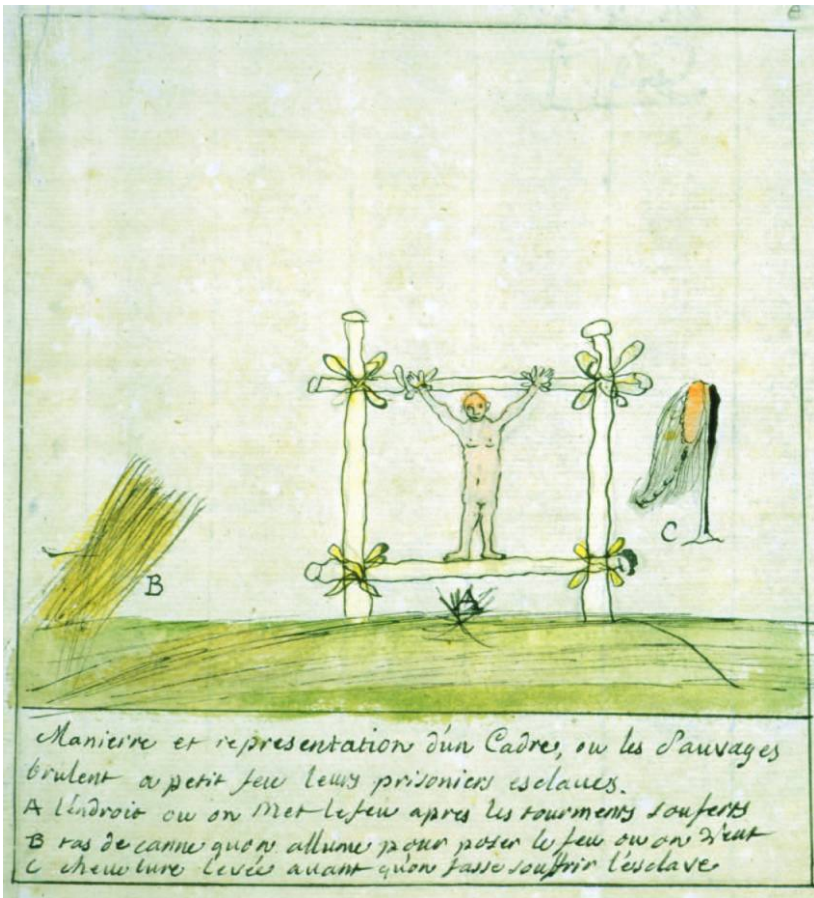 B
C
A
Manierre et representation d'un Cadre, ou les Sauvages
brulent a petit feu leurs prisoniers esclaves.
A l'endroit ou on Met le feu apres les tourments souferts
B tas de canne qu'on allume pour poser le feu ou on
C cheuelure levée auant qu'on fasse souffrir l'esclave